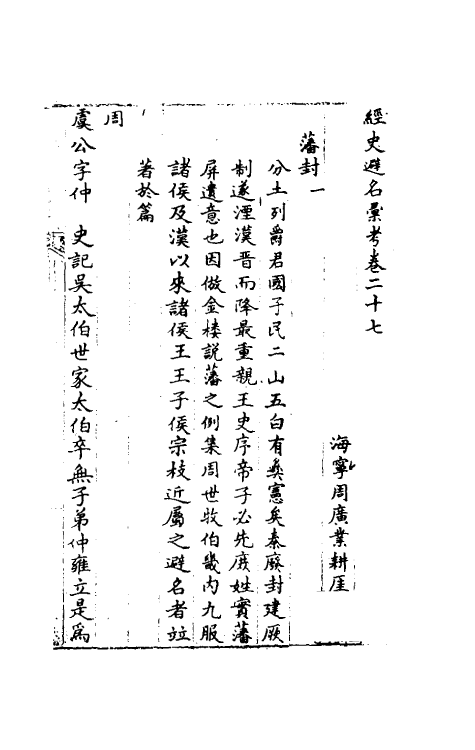 經史避名彙考卷二十七
海寧周廣業耕厓
藩封一
分土列爵君國子民二山五白有奠憲矣秦廢封建厥
制遂湮漢晋而降最重親王史序帝子必先庻姓實藩
屏遺意也因倣金楼説藩之例集周世牧伯畿内九服
諸侯及漢以來諸侯王王子侯宗枝近屬之避名者竝
著於篇
周
虞公字仲 史記吴太伯世家太伯卒無子弟仲雍立是爲